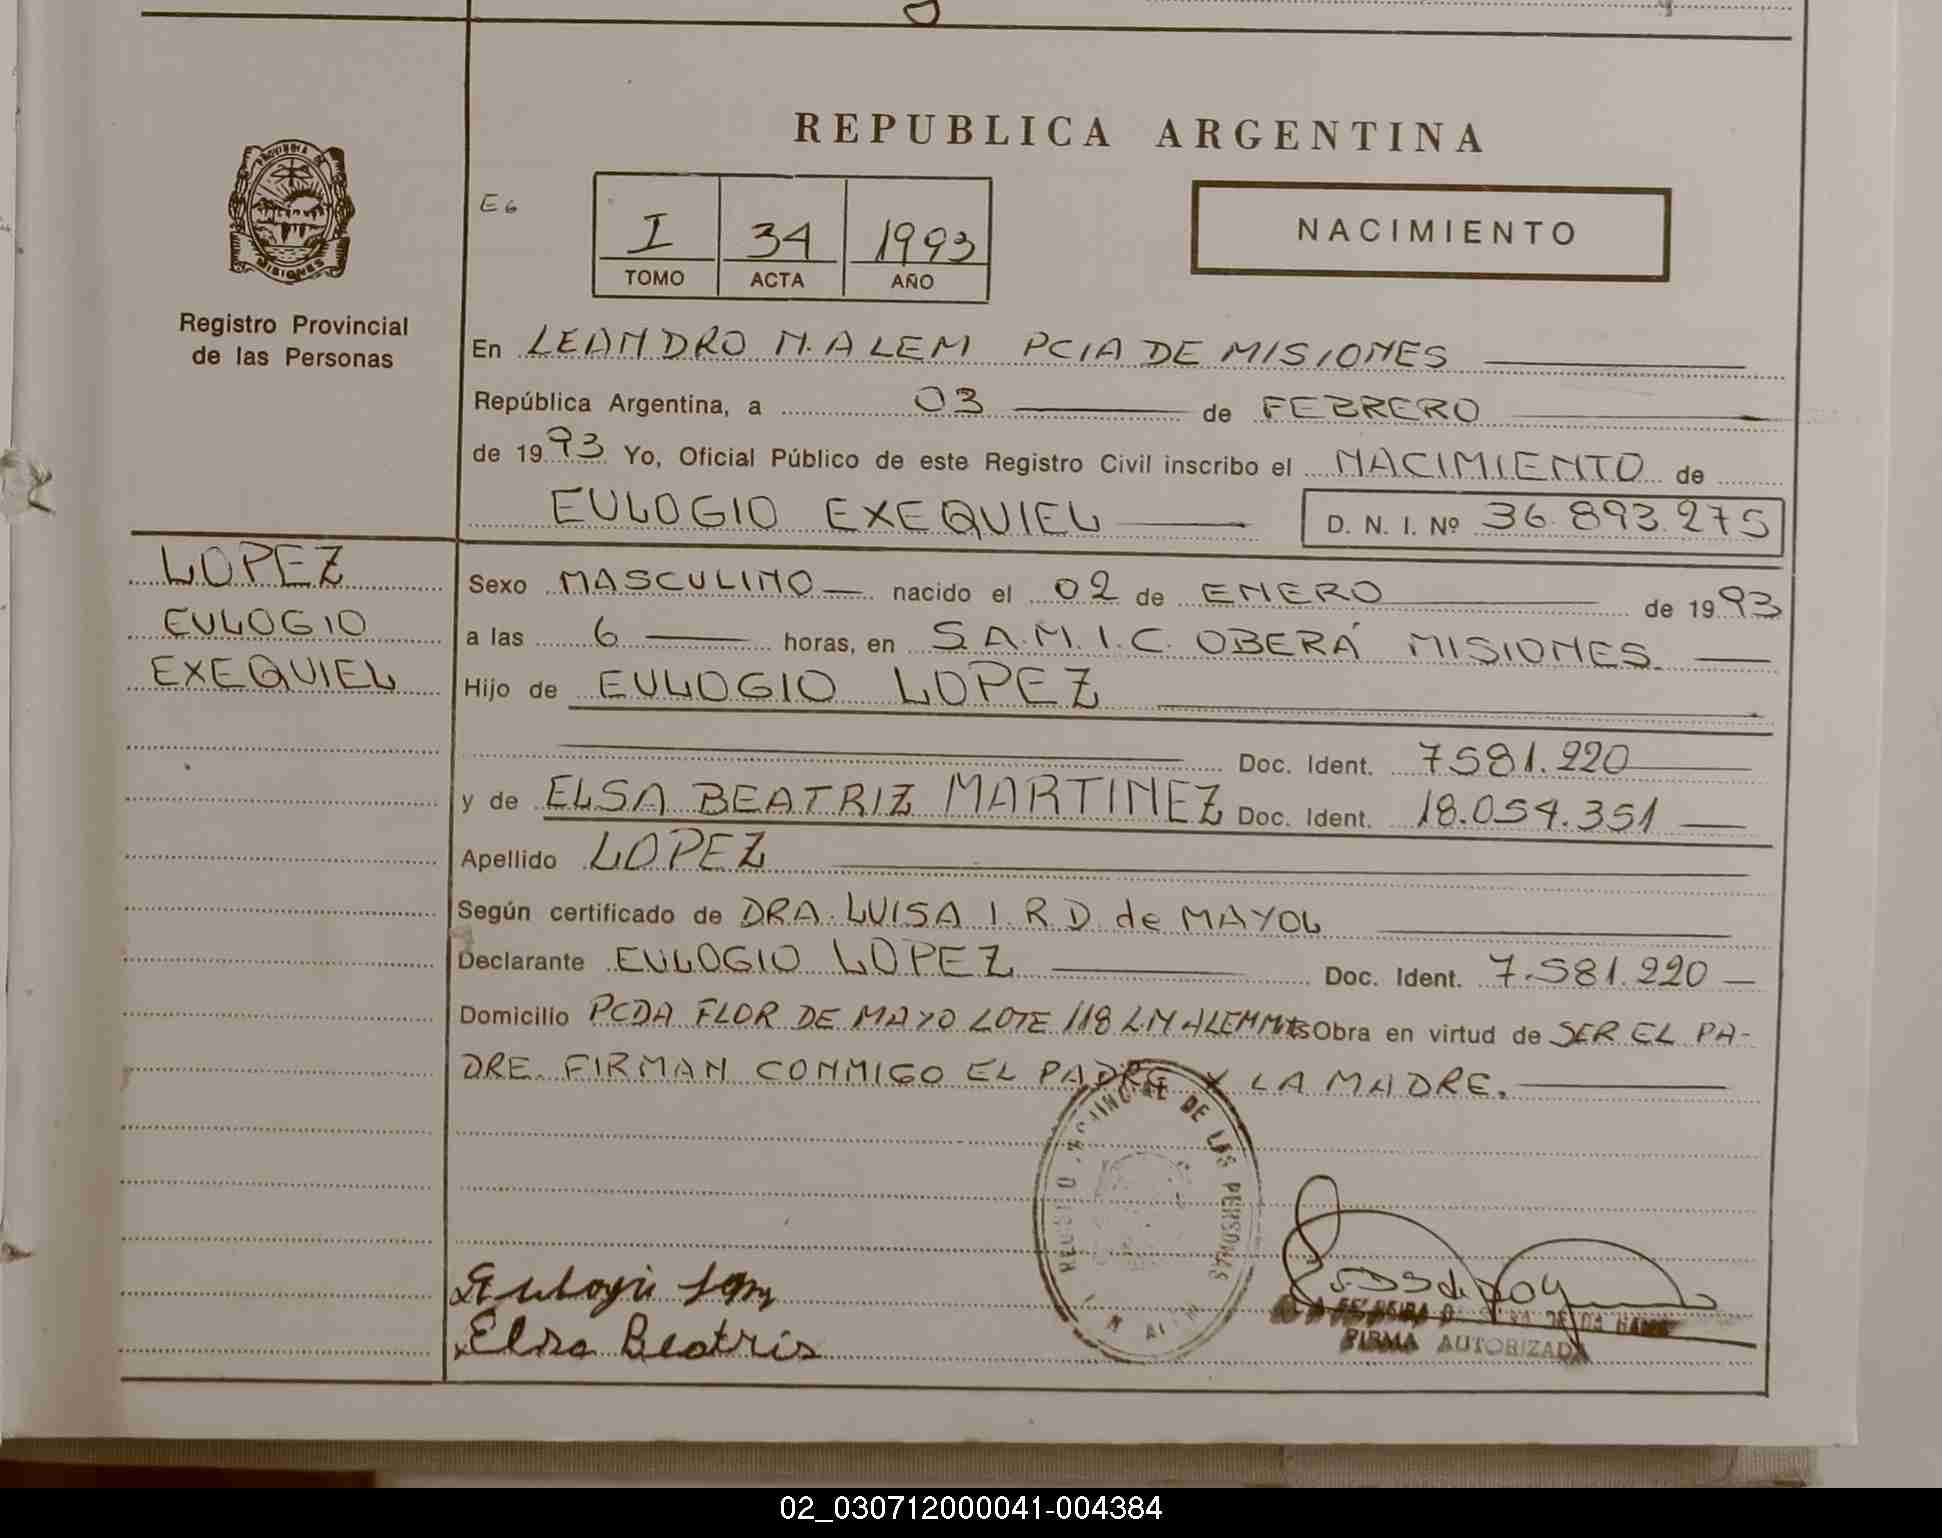 REPUBLICA ARGENTINA
PROVINCIA DE MISIONES
E6
I 34 1993
TOMO ACTA AÑO
NACIMIENTO
Registro Provincial
de las Personas
En LEANDRO N. ALEM PCIA DE MISIONES
República Argentina, a 03 de FEBRERO
de 1993 Yo, Oficial Público de este Registro Civil inscribo el NACIMIENTO de
EULOGIO EXEQUIEL D. N. I. Nº 36.893.275
LOPEZ
EULOGIO
EXEQUIEL
Sexo MASCULINO nacido el 02 de ENERO de 1993
a las 6 horas, en S.A.M.I.C. OBERÁ MISIONES.
Hijo de EULOGIO LOPEZ
Doc. Ident. 7581.220
y de ELSA BEATRIZ MARTINEZ Doc. Ident. 18.054.351
Apellido LOPEZ
Según certificado de DRA. LUISA I. R. D. de MAYOL
Declarante EULOGIO LOPEZ Doc. Ident. 7.581.220
Domicilio PCDA FLOR DE MAYO LOTE 118 L.N ALEM Obra en virtud de SER EL PA-
DRE. FIRMAN CONMIGO EL PADRE Y LA MADRE.
DE LAS PERSONAS
Eulogio
Elsa Beatris
FIRMA AUTORIZADA
02_030712000041-004384